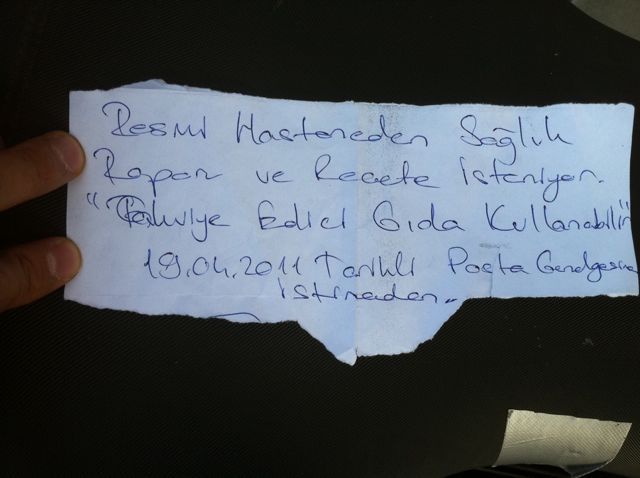 Resmi Hasteneden Sağlık
Rapor ve Recete isteniyor.
"Takviye Edici Gıda Kullanabilir"
19.04.2011 Tarihli Posta Genelgesine
istinaden"